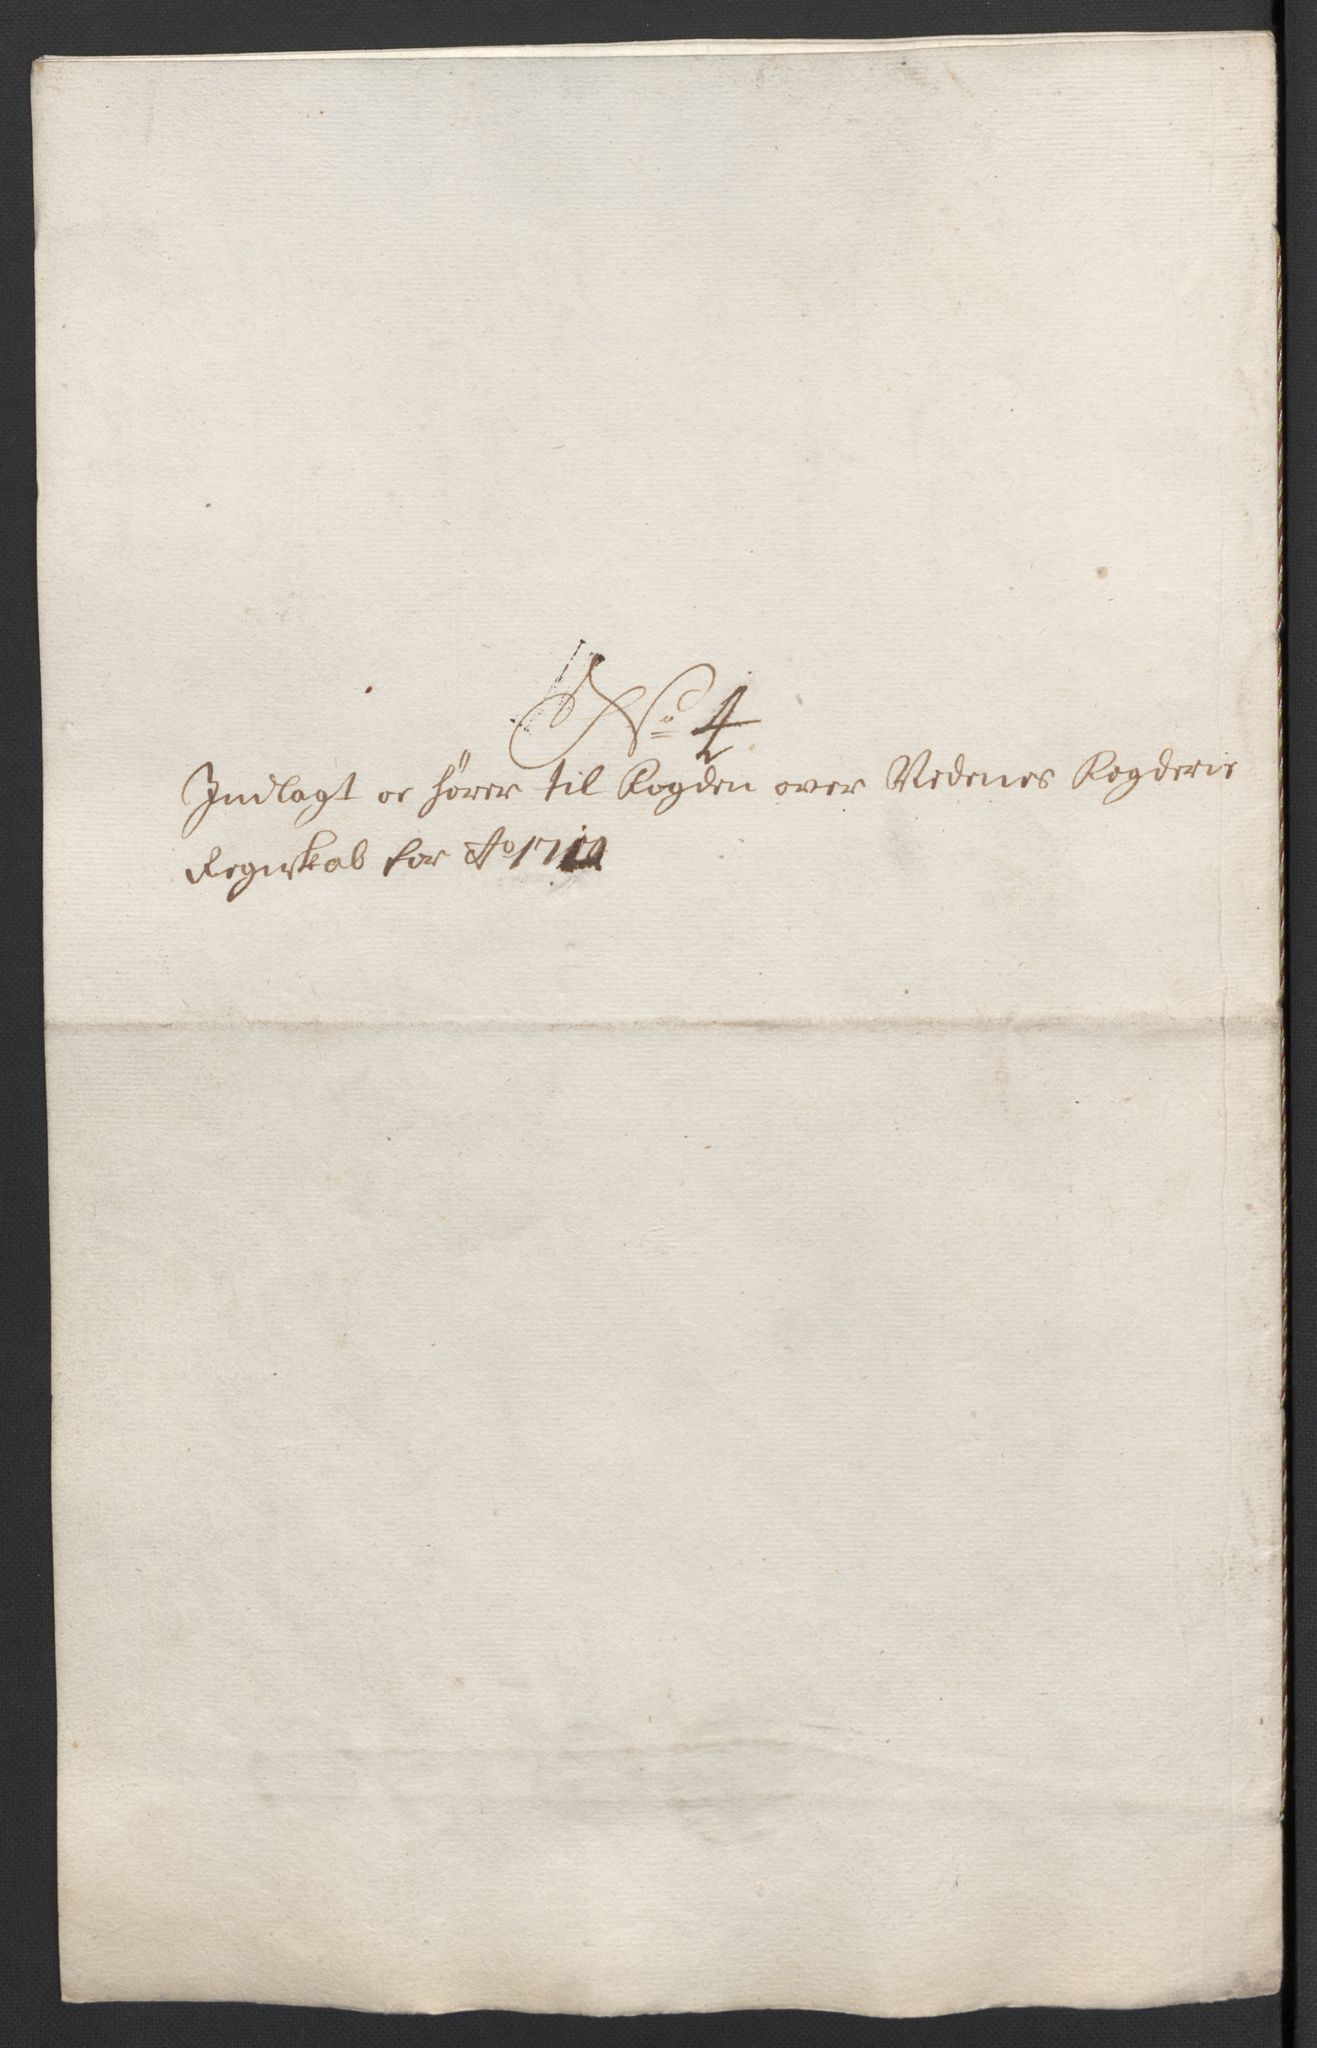 No 4
Indlagt oc hører til Fogden over Nedenes Fogderie
Regnskab for Ao 1710